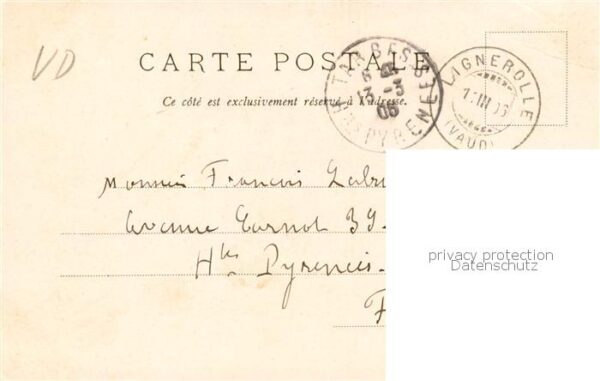 VD
CARTE POSTALE
Ce côté est exclusivement réservé à l'adresse.
TARBES
13-3
05
HTES PYRENEES
LIGNEROLLE
(VAUD)
Monsieur François
Avenue Carnot 39.
Htes Pyrenées.
F
privacy protection
Datenschutz